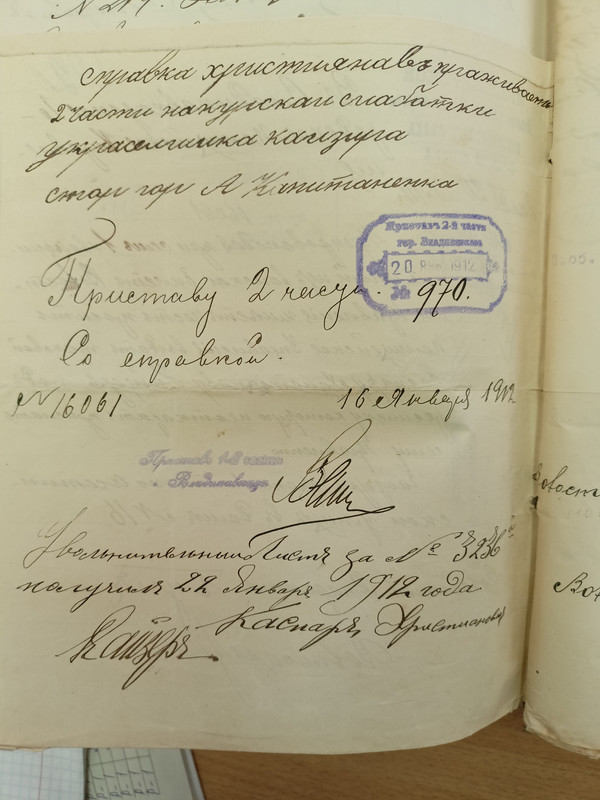 справка християнавъ праживаетъ
2 части на курскаи слаботки
у красилшика канзуга
стор гор А Капитаненка
Приставъ 2-й части
гор. Владикавказа
20 Янв 1912
№ 970.
Приставу 2 части.
Со справкой.
№ 16061 16 Января 1912
Приставъ 1-й части
г. Владикавказа
Увольнительный Листъ за № 3236
получилъ 22 Января 1912 года
Каспаръ Христиановъ
Кайзеръ